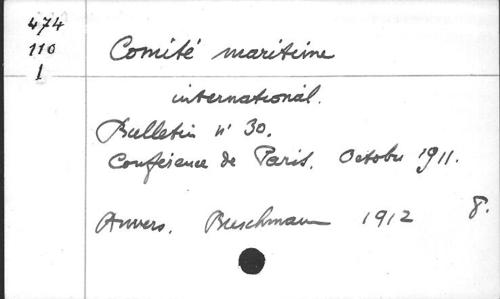 474
110
1
Comité maritime
international.
Bulletin n° 30.
Conférence de Paris. Octobre 1911.
Anvers. Buschmann 1912 8.